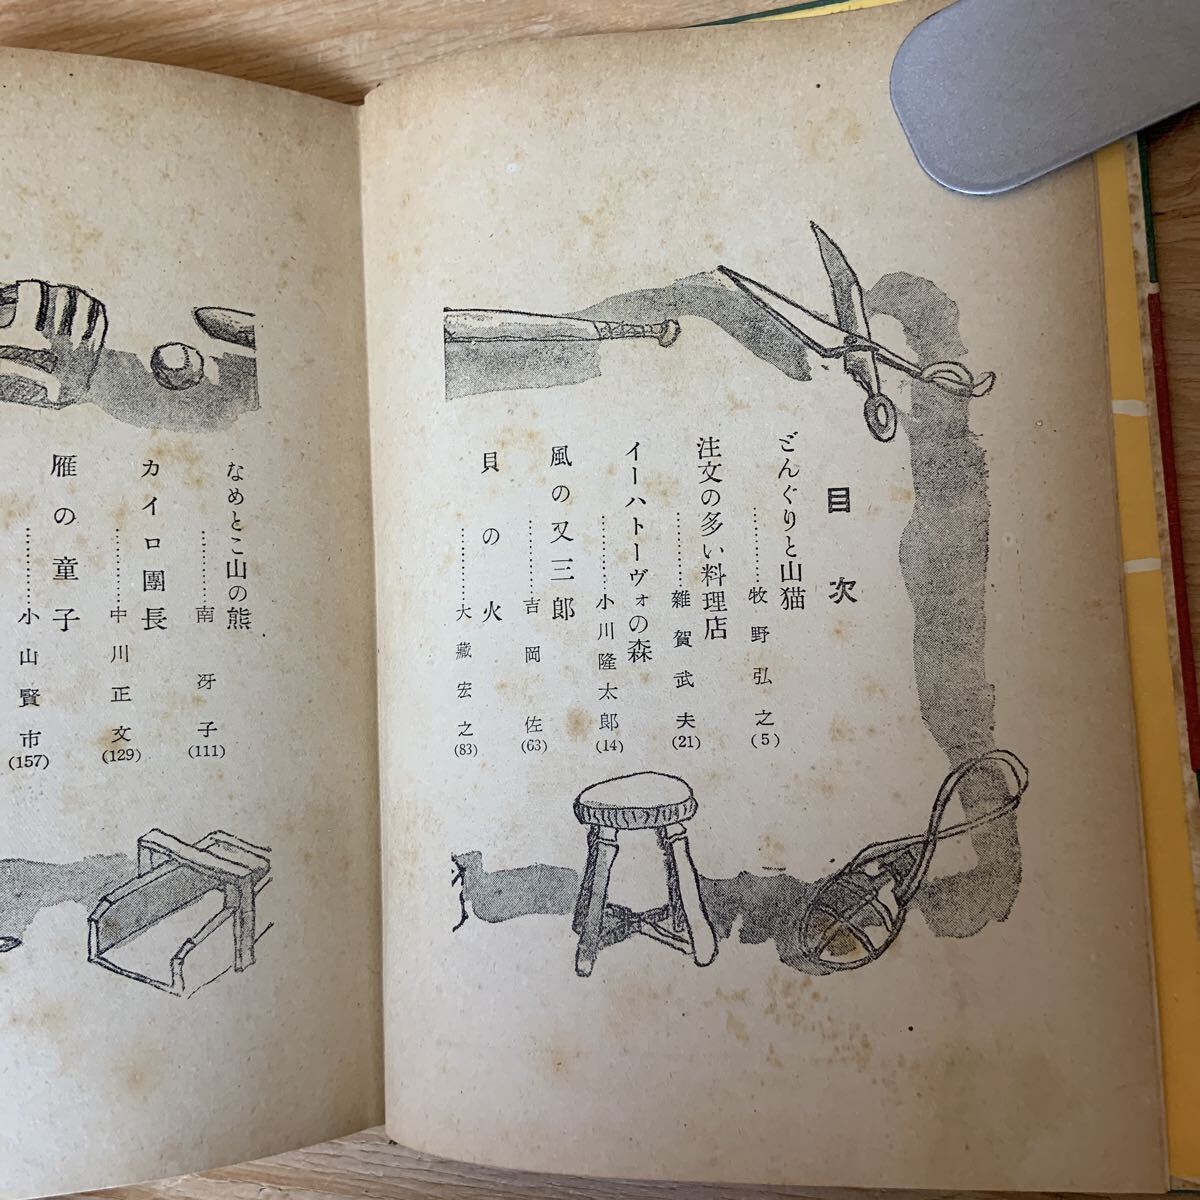 目次
どんぐりと山猫
…………牧野弘之(5)
注文の多い料理店
…………雑賀武夫(21)
イーハトーヴォの森
…………小川隆太郎(14)
風の又三郎
…………吉岡佐(63)
貝の火
…………大藏宏之(83)
なめとこ山の熊
…………南冴子(111)
カイロ團長
…………中川正文(129)
雁の童子
…………小山賢市(157)